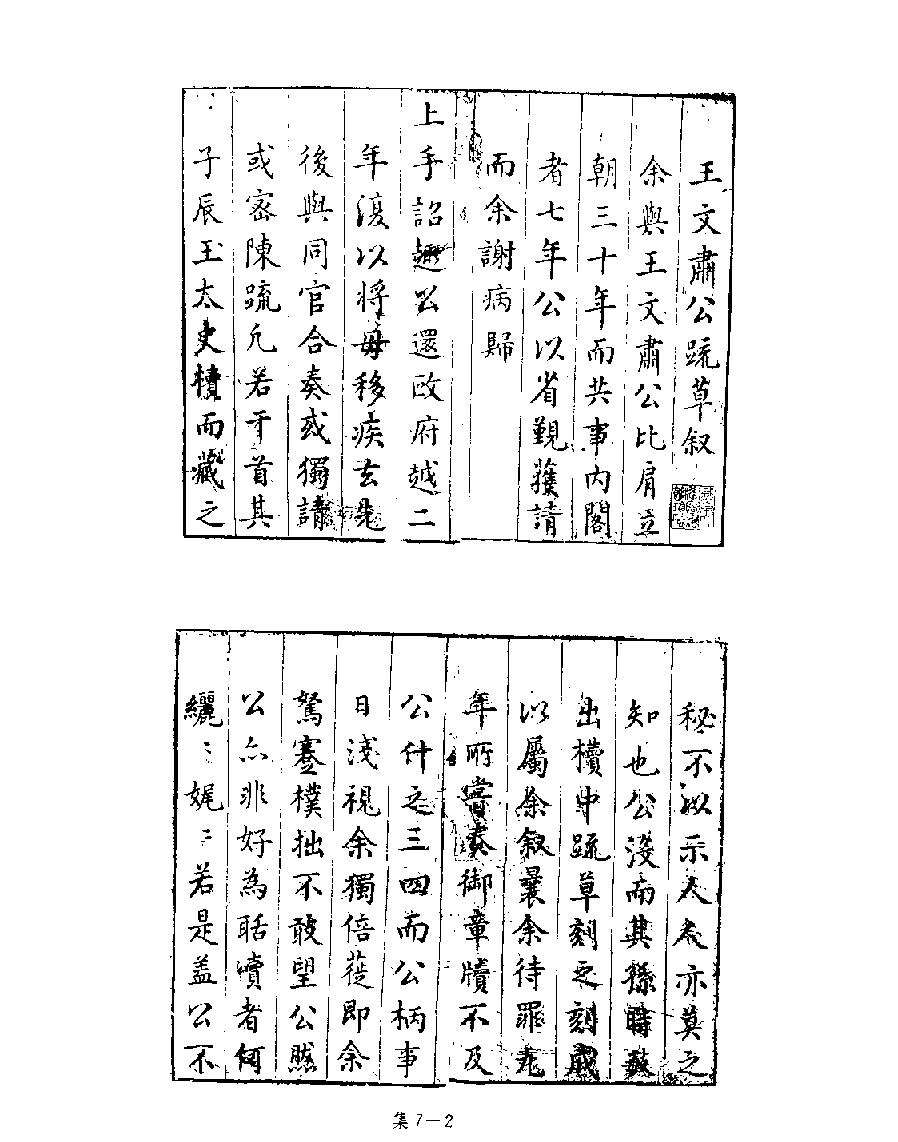 王文肅公疏草叙
余與王文肅公比肩立
朝三十年而共事内閣
者七年公以省覲獲請
而余謝病歸
上手詔趣公還政府越二
年復以將母移疾去先
後與同官合奏或獨請
或密陳疏凡若干首其
子辰玉太史櫝而藏之
秘不以示人人亦莫之
知也公没而其孫時敏
出櫝中疏草刻之刻成
以屬余叙曩余待罪九
年所嘗奏御章牘不及
公什之三四而公柄事
日淺視余獨倍蓰即余
駑蹇樸拙不敢望公然
公亦非好為聒瀆者何
纚〻娓〻若是盖公不
集7-2